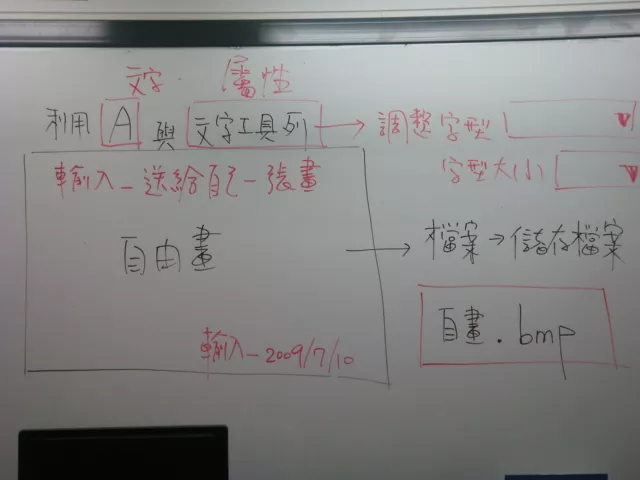 文字 屬性
利用 A 與 文字工具列 → 調整字型
字型大小
輸入_送給自己一張畫
自由畫
→ 檔案→儲存檔案
自畫.bmp
輸入_2009/7/10